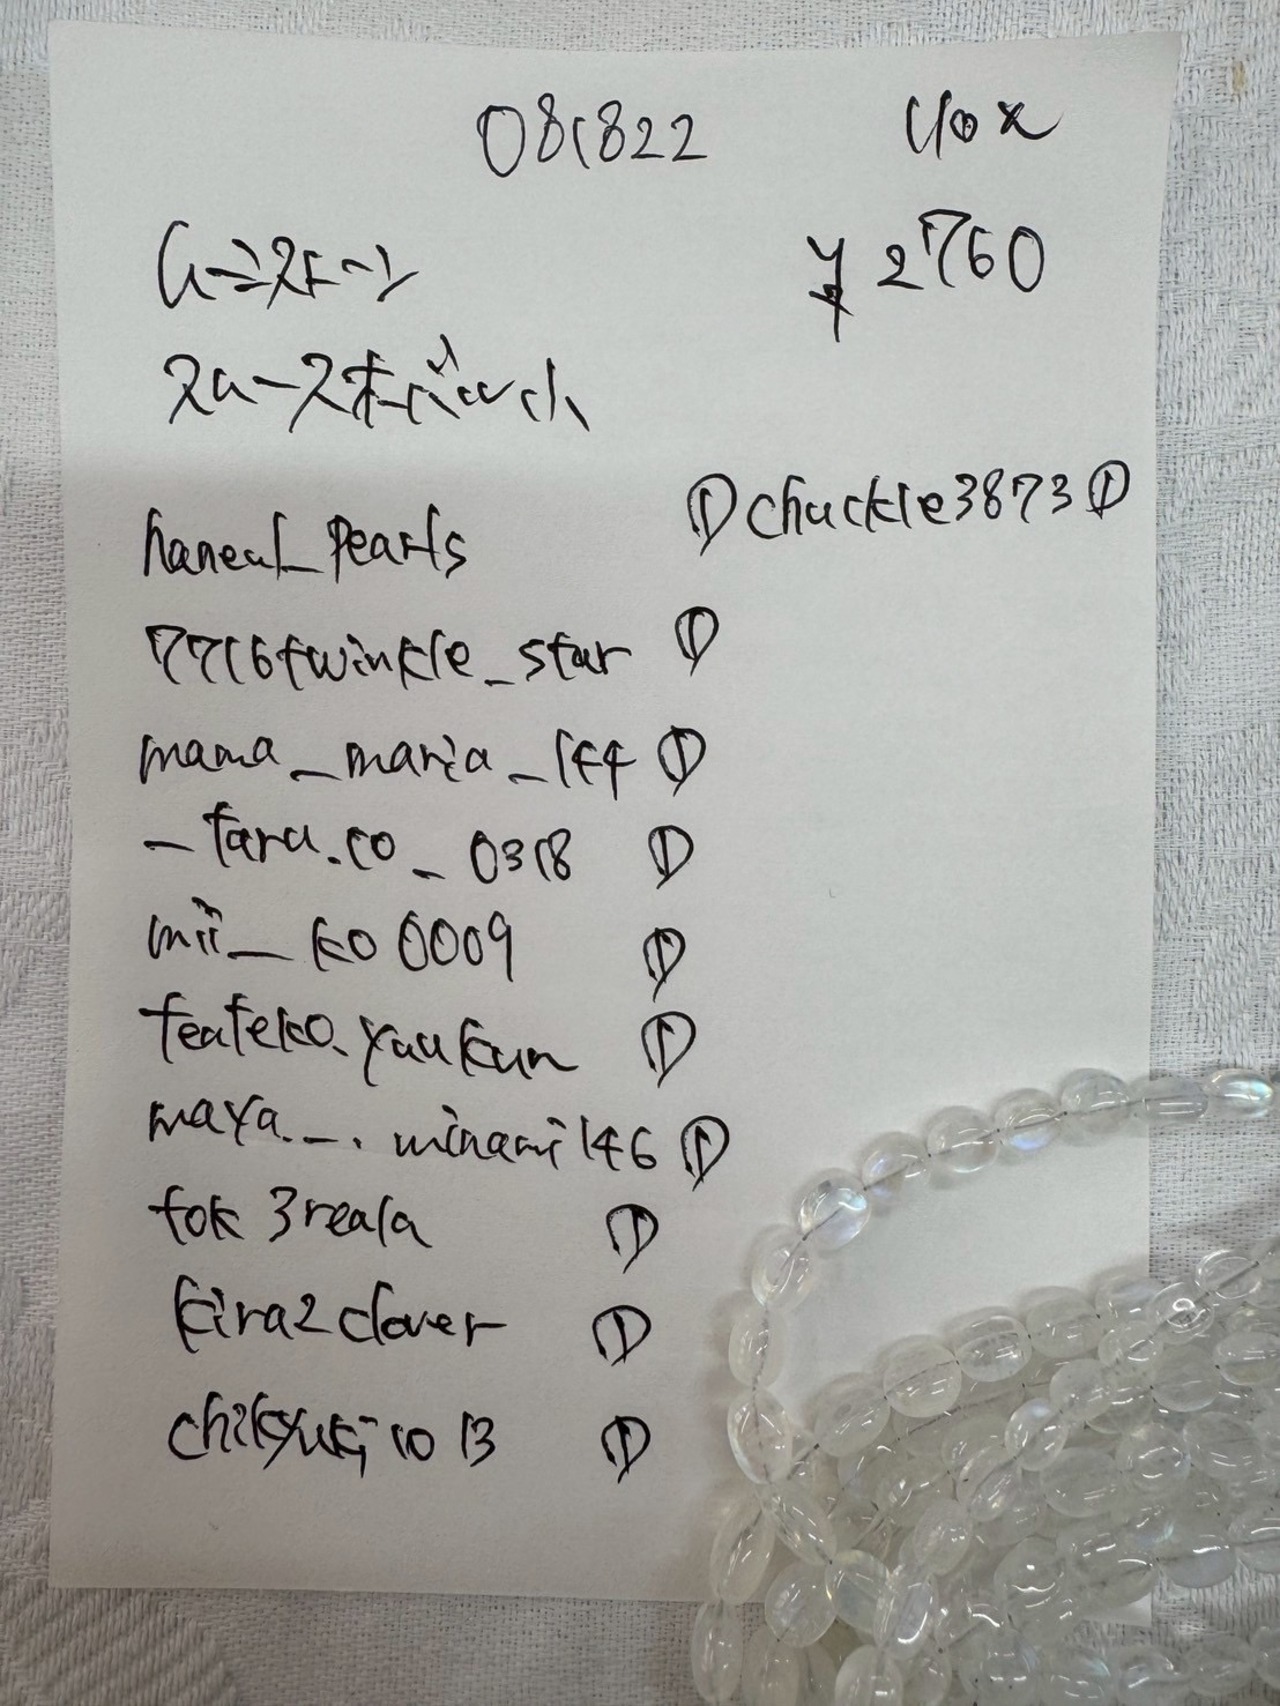 081822
¥2760
haneul_pearls
① chuckle3873 ①
7716twinkle_star ①
mama_maria_144 ①
_taru.co_0318 ①
mii_ko0009 ①
teateko.yuukun ①
maya._.minami146 ①
tok3reala ①
kira2clover ①
chikyuki1013 ①